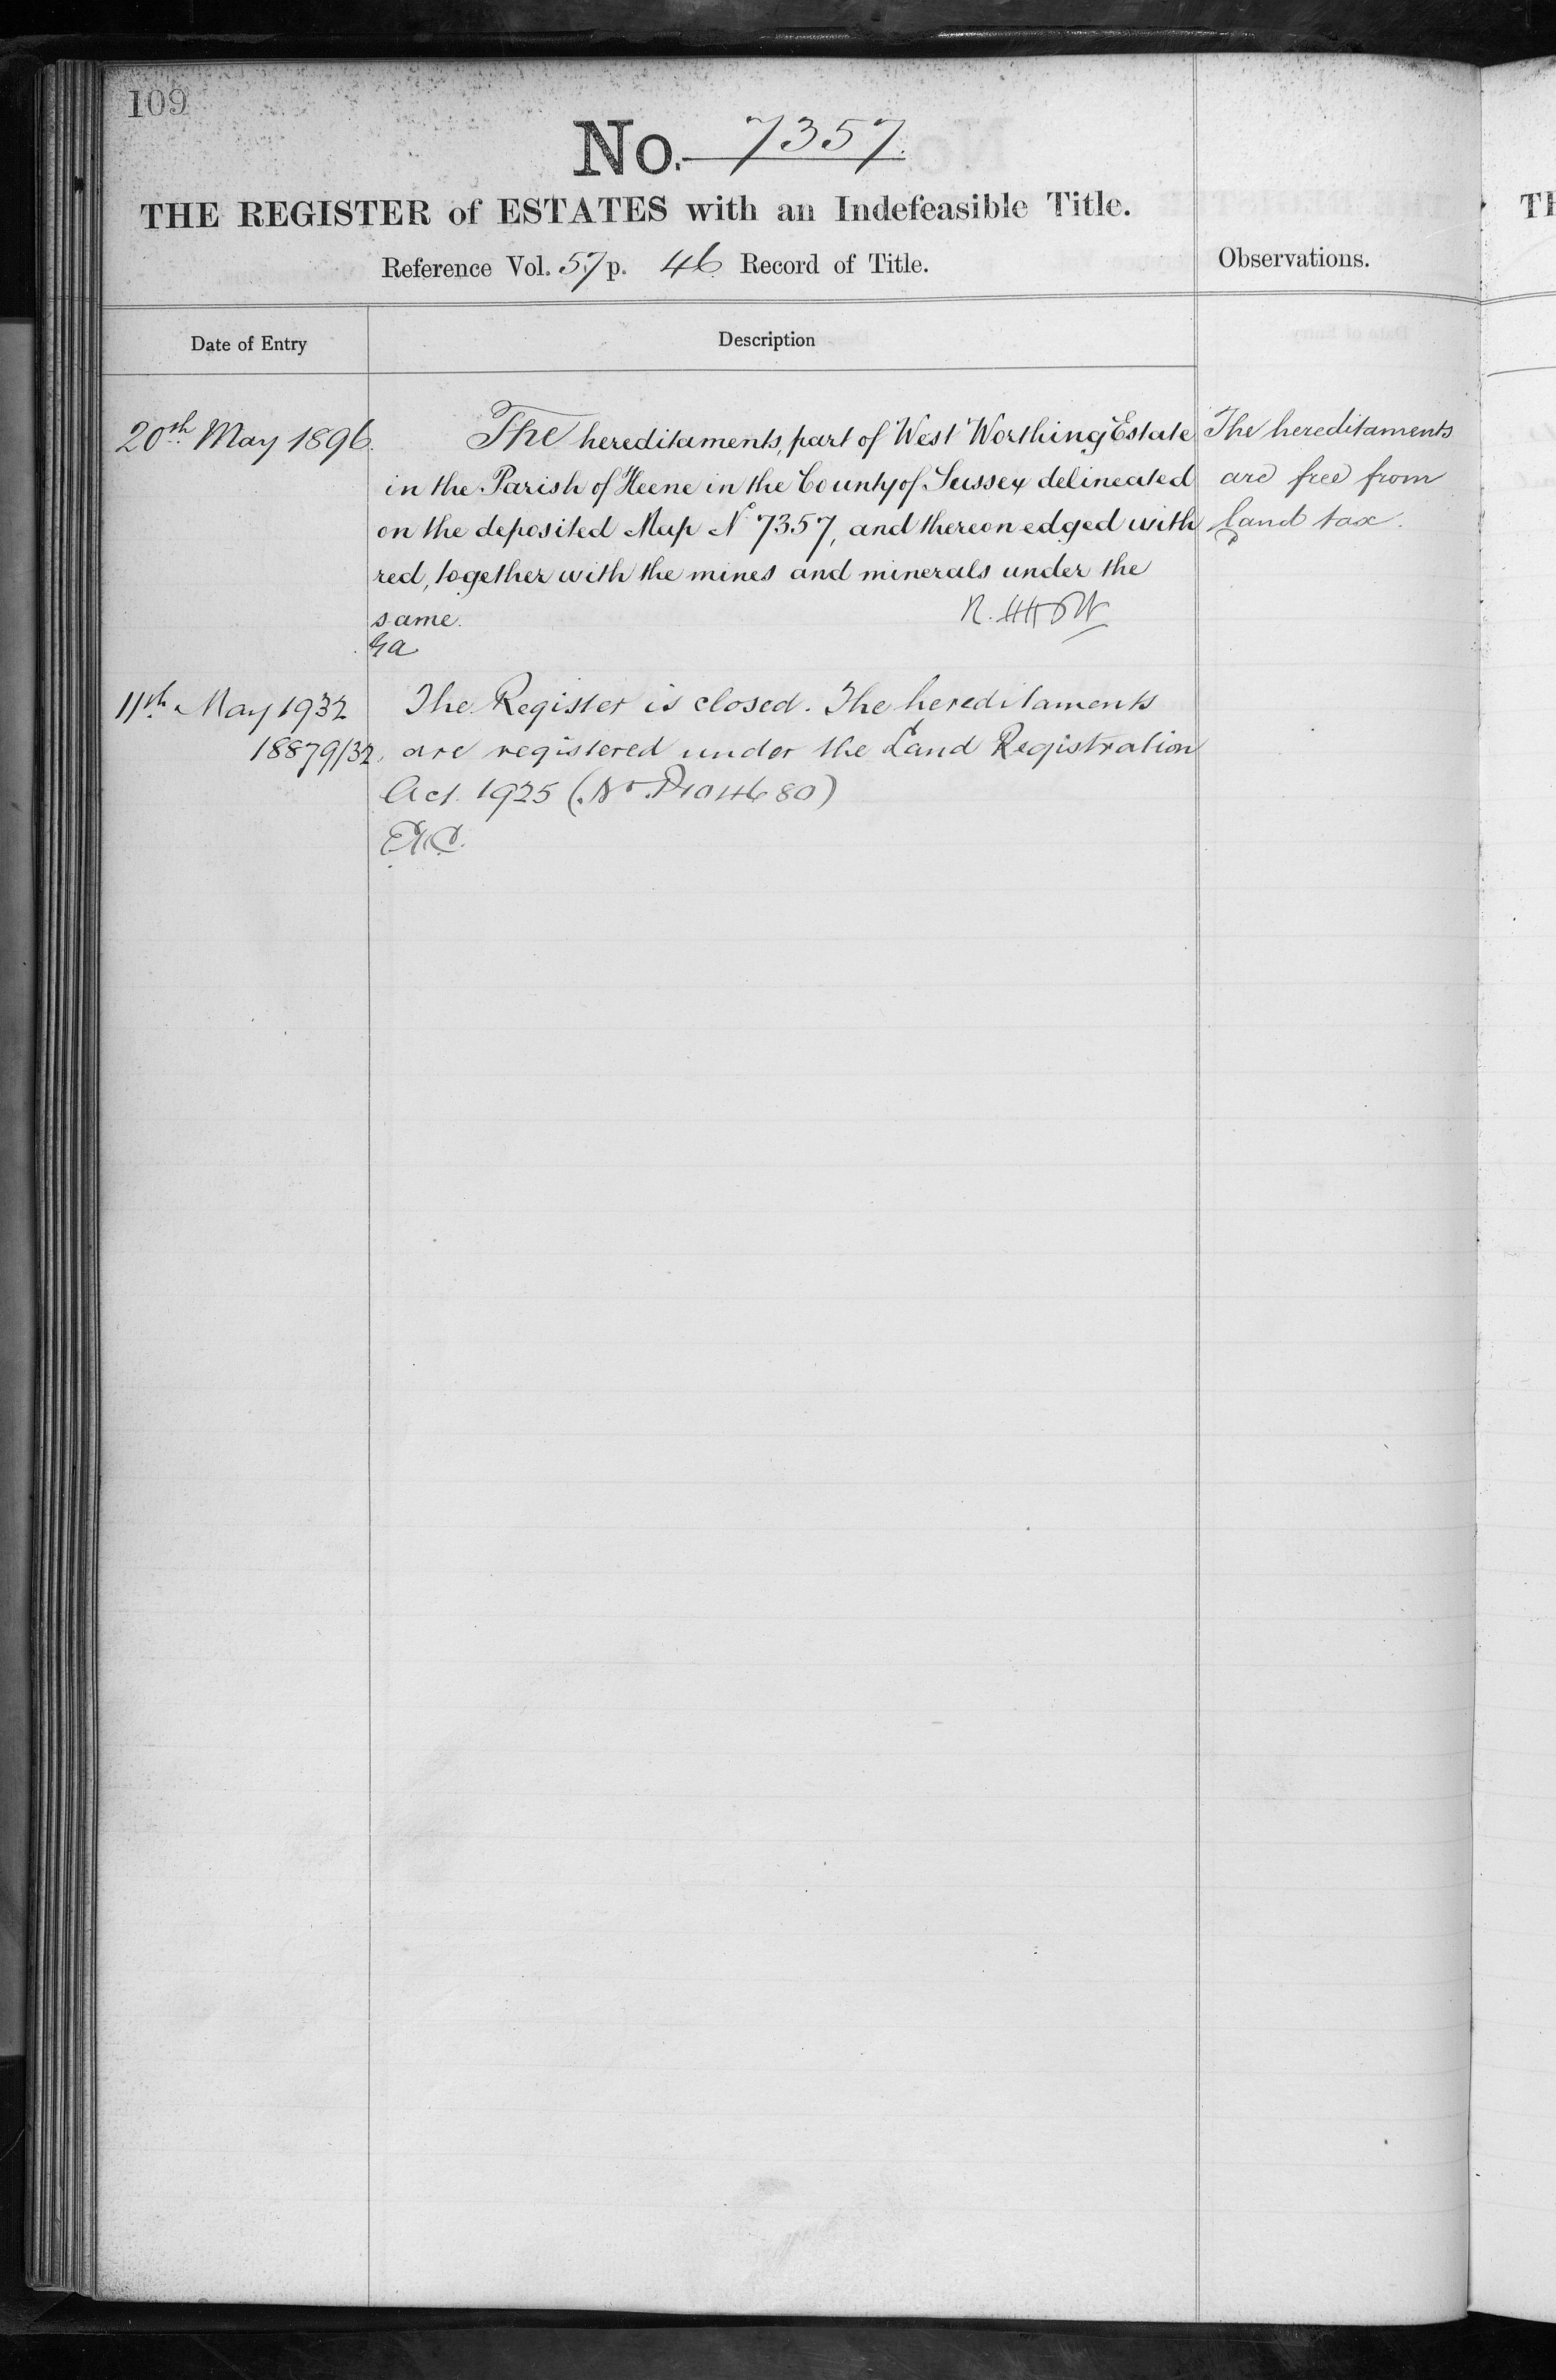 109
No. 7357.
THE REGISTER of ESTATES with an Indefeasible Title.
Reference Vol. 57 p. 46 Record of Title.
Observations.
Date of Entry
Description
20th May 1896.
The hereditaments, part of West Worthing Estate
in the Parish of Heene in the County of Sussex delineated
on the deposited Map No 7357, and thereon edged with
red, together with the mines and minerals under the
same.
The hereditaments
are free from
land tax.
11th May 1932
18879/32.
The Register is closed. The hereditaments
are registered under the Land Registration
Act 1925 (No. P104680)
TH